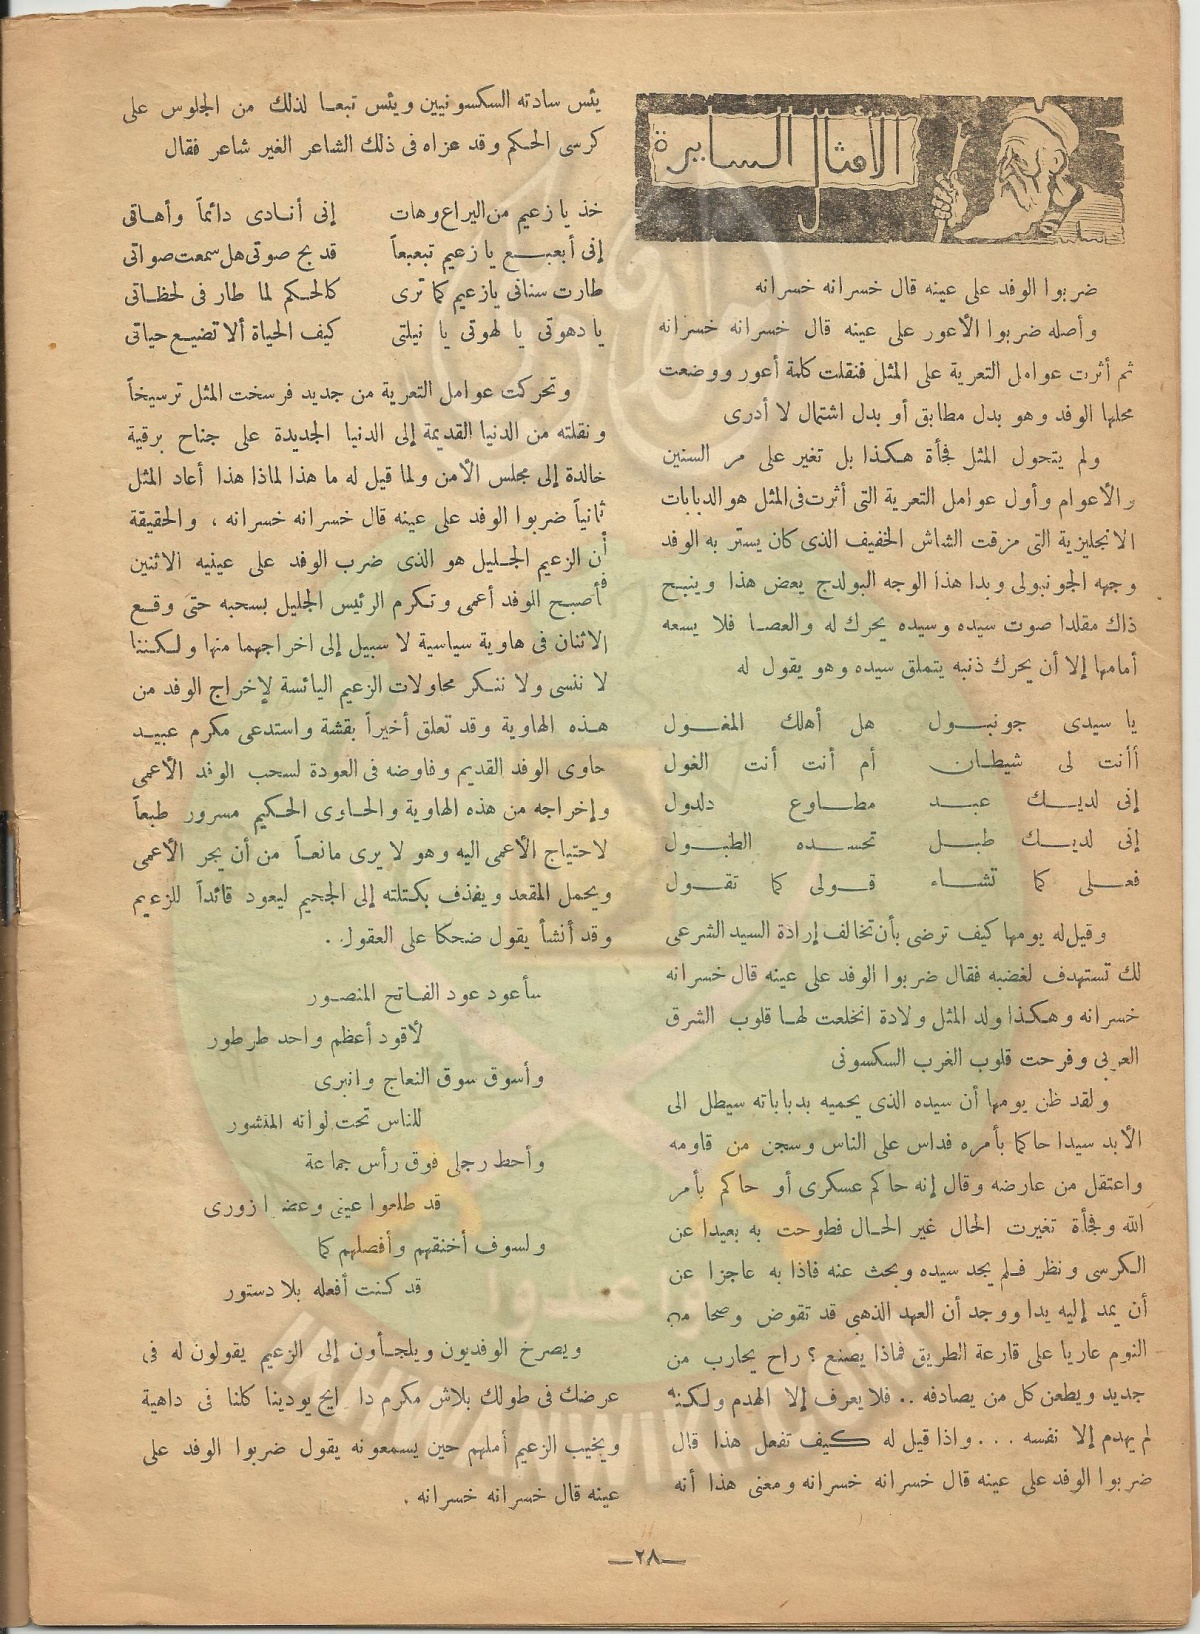 الأمثال السايرة
ضربوا الوفد على عينه قال خسرانه خسرانه
وأصله ضربوا الأعور على عينه قال خسرانه خسرانه
ثم أثرت عوامل التعرية على المثل فنقلت كلمة أعور ووضعت
محلها الوفد وهو بدل مطابق أو بدل اشتمال لا أدرى
ولم يتحول المثل فجأة هكذا بل تغير على مر السنين
والأعوام وأول عوامل التعرية التى أثرت فى المثل هو الدبابات
الانجليزية التى مزقت الشاش الخفيف الذى كان يستر به الوفد
وجهه الجونبولى وبدا هذا الوجه البولدج يعض هذا وينبح
ذاك مقلدا صوت سيده وسيده يحرك له والعصا فلا يسعه
أمامها إلا أن يحرك ذنبه يتملق سيده وهو يقول له
يا سيدى جونبول هل أهلك المغول
أأنت لى شيطان أم أنت أنت الغول
إنى لديك عبد مطاوع دلدول
إنى لديك طبل تحسده الطبول
فعلى كما تشاء قولى كما تقول
وقيل له يومها كيف ترضى بأن تخالف إرادة السيد الشرعى
لك تستهدف لغضبه فقال ضربوا الوفد على عينه قال خسرانه
خسرانه وهكذا ولد المثل ولادة انخلعت لها قلوب الشرق
العربى وفرحت قلوب الغرب السكسونى
ولقد ظن يومها أن سيده الذى يحميه بدباباته سيظل الى
الأبد سيدا حاكما بأمره فداس على الناس وسجن من قاومه
واعتقل من عارضه وقال إنه حاكم عسكرى أو حاكم بأمر
الله وفجأة تغيرت الحال غير الحال فطوحت به بعيدا عن
الكرسى ونظر فلم يجد سيده وبحث عنه فاذا به عاجزا عن
أن يمد إليه يدا ووجد أن العهد الذهبى قد تقوض وصحا من
النوم عاريا على قارعة الطريق فماذا يصنع ؟ راح يحارب من
جديد ويطعن كل من يصادفه .. فلا يعرف إلا الهدم ولكنه
لم يهدم إلا نفسه ... واذا قيل له كيف تفعل هذا قال
ضربوا الوفد على عينه قال خسرانه خسرانه ومعنى هذا أنه
يئس سادته السكسونيين ويئس تبعا لذلك من الجلوس على
كرسى الحكم وقد عزاه فى ذلك الشاعر الغير شاعر فقال
خذ يا زعيم من اليراع وهات إنى أنادى دائماً وأهاتى
إنى أبعبع يا زعيم تبعبعاً قد بح صوتى هل سمعت صواتى
طارت سنانى يازعيم كما ترى كالحكم لما طار فى لحظاتى
يا دهوتى يا لهوتى يا نيلتى كيف الحياة ألا تضيع حياتى
وتحركت عوامل التعرية من جديد فرسخت المثل ترسيخاً
ونقلته من الدنيا القديمة إلى الدنيا الجديدة على جناح برقية
خالدة إلى مجلس الأمن ولما قيل له ما هذا لماذا هذا أعاد المثل
ثانياً ضربوا الوفد على عينه قال خسرانه خسرانه ، والحقيقة
أن الزعيم الجليل هو الذى ضرب الوفد على عينيه الاثنين
فأصبح الوفد أعمى وتكرم الرئيس الجليل بسحبه حتى وقع
الاثنان فى هاوية سياسية لا سبيل إلى اخراجهما منها ولكننا
لا ننسى ولا ننكر محاولات الزعيم اليائسة لإخراج الوفد من
هذه الهاوية وقد تعلق أخيراً بقشة واستدعى مكرم عبيد
حاوى الوفد القديم وفاوضه فى العودة لسحب الوفد الأعمى
وإخراجه من هذه الهاوية والحاوى الحكيم مسرور طبعاً
لاحتياج الأعمى اليه وهو لا يرى مانعاً من أن يجر الأعمى
ويحمل المقعد ويقذف بكتلته إلى الجحيم ليعود قائداً للزعيم
وقد أنشأ يقول ضحكا على العقول .
سأعود عود الفاتح المنصور
لأقود أعظم واحد طرطور
وأسوق سوق النعاج وانبرى
للناس تحت لوائه المنشور
وأحط رجلى فوق رأس جماعة
قد طلعوا عينى وعضوا زورى
ولسوف أخنقهم وأفصلهم كما
قد كنت أفعله بلا دستور
ويصرخ الوفديون ويلجأون إلى الزعيم يقولون له فى
عرضك فى طولك بلاش مكرم دا ايج يودينا كلنا فى داهية
ويخيب الزعيم أملهم حين يسمعونه يقول ضربوا الوفد على
عينه قال خسرانه خسرانه .
—٢٨—
وأعدوا
IKHWANWIKI.COM